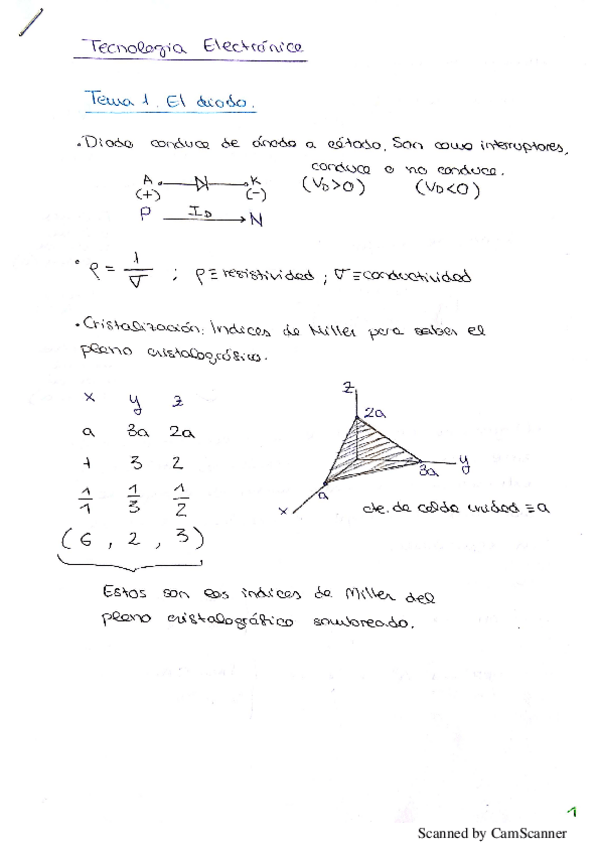 Tecnología Electrónica
Tema 1. El diodo.
• Diodo conduce de ánodo a cátodo. Son como interruptores,
conduce o no conduce.
A K (V_D>0) (V_D<0)
(+) (-)
P I_D N
• ρ = 1/σ ; ρ≡resistividad ; σ≡conductividad
• Cristalización: Indices de Miller para saber el
plano cristalográfico.
x y z
a 3a 2a
1 3 2
1/1 1/3 1/2
(6, 2, 3)
z
2a
y
3a
a
x
cte. de celda unidad ≡ a
Estos son los indices de Miller del
plano cristalográfico sombreado.
1
Scanned by CamScanner